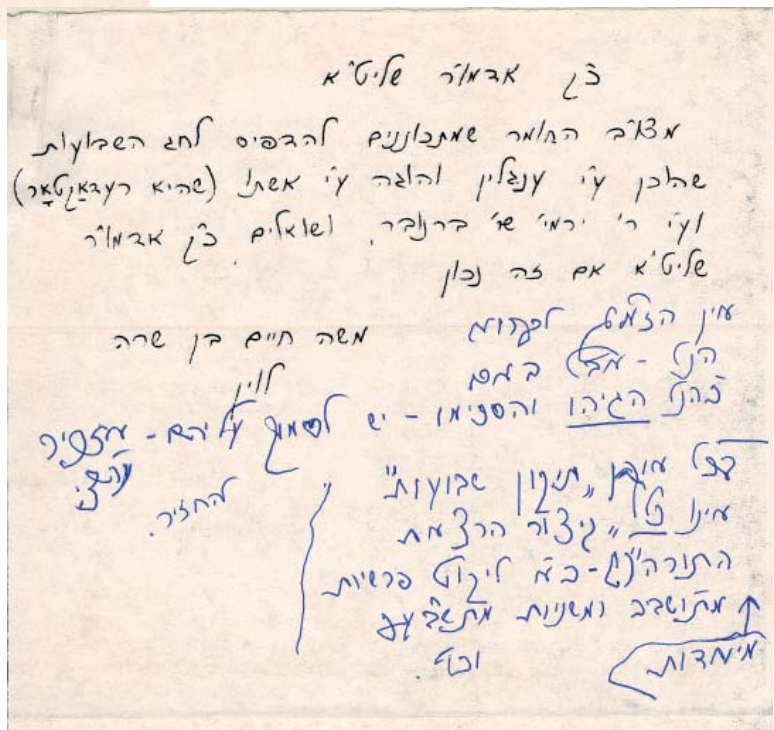 כ"ק אדמו"ר שליט"א
מצו"ב החומר שמתכוננים להדפיס לחג השבועות
שהוכן ע"י ענגלין והוגה ע"י אשתו (שהיא רעדאַקטאָר)
וע"י ר' ירמי' שי' ברנובר. ושואלים כ"ק אדמו"ר
שליט"א אם זה נכון
משה חיים בן שרה
לוין
אין הזמ"ג לפקוח
הנ"ל - אבל באם
כהנ"ל הגיהו והסכימו - יש לסמוך עליהם -
להחזיר.
בכל אופן "תיקון שבועות"
אינו כלל "קיצור הרצאת
התורה" כ"א ליקוט פרשיות
מיוחדות
מתושב"כ ומשניות מתושבע"פ
וכו'.